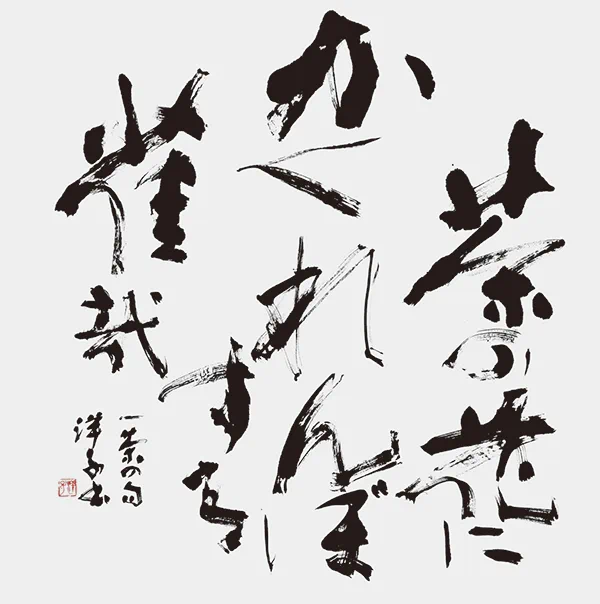 茶の花に
かくれんぼ
する
雀哉
一茶の句
洋子書